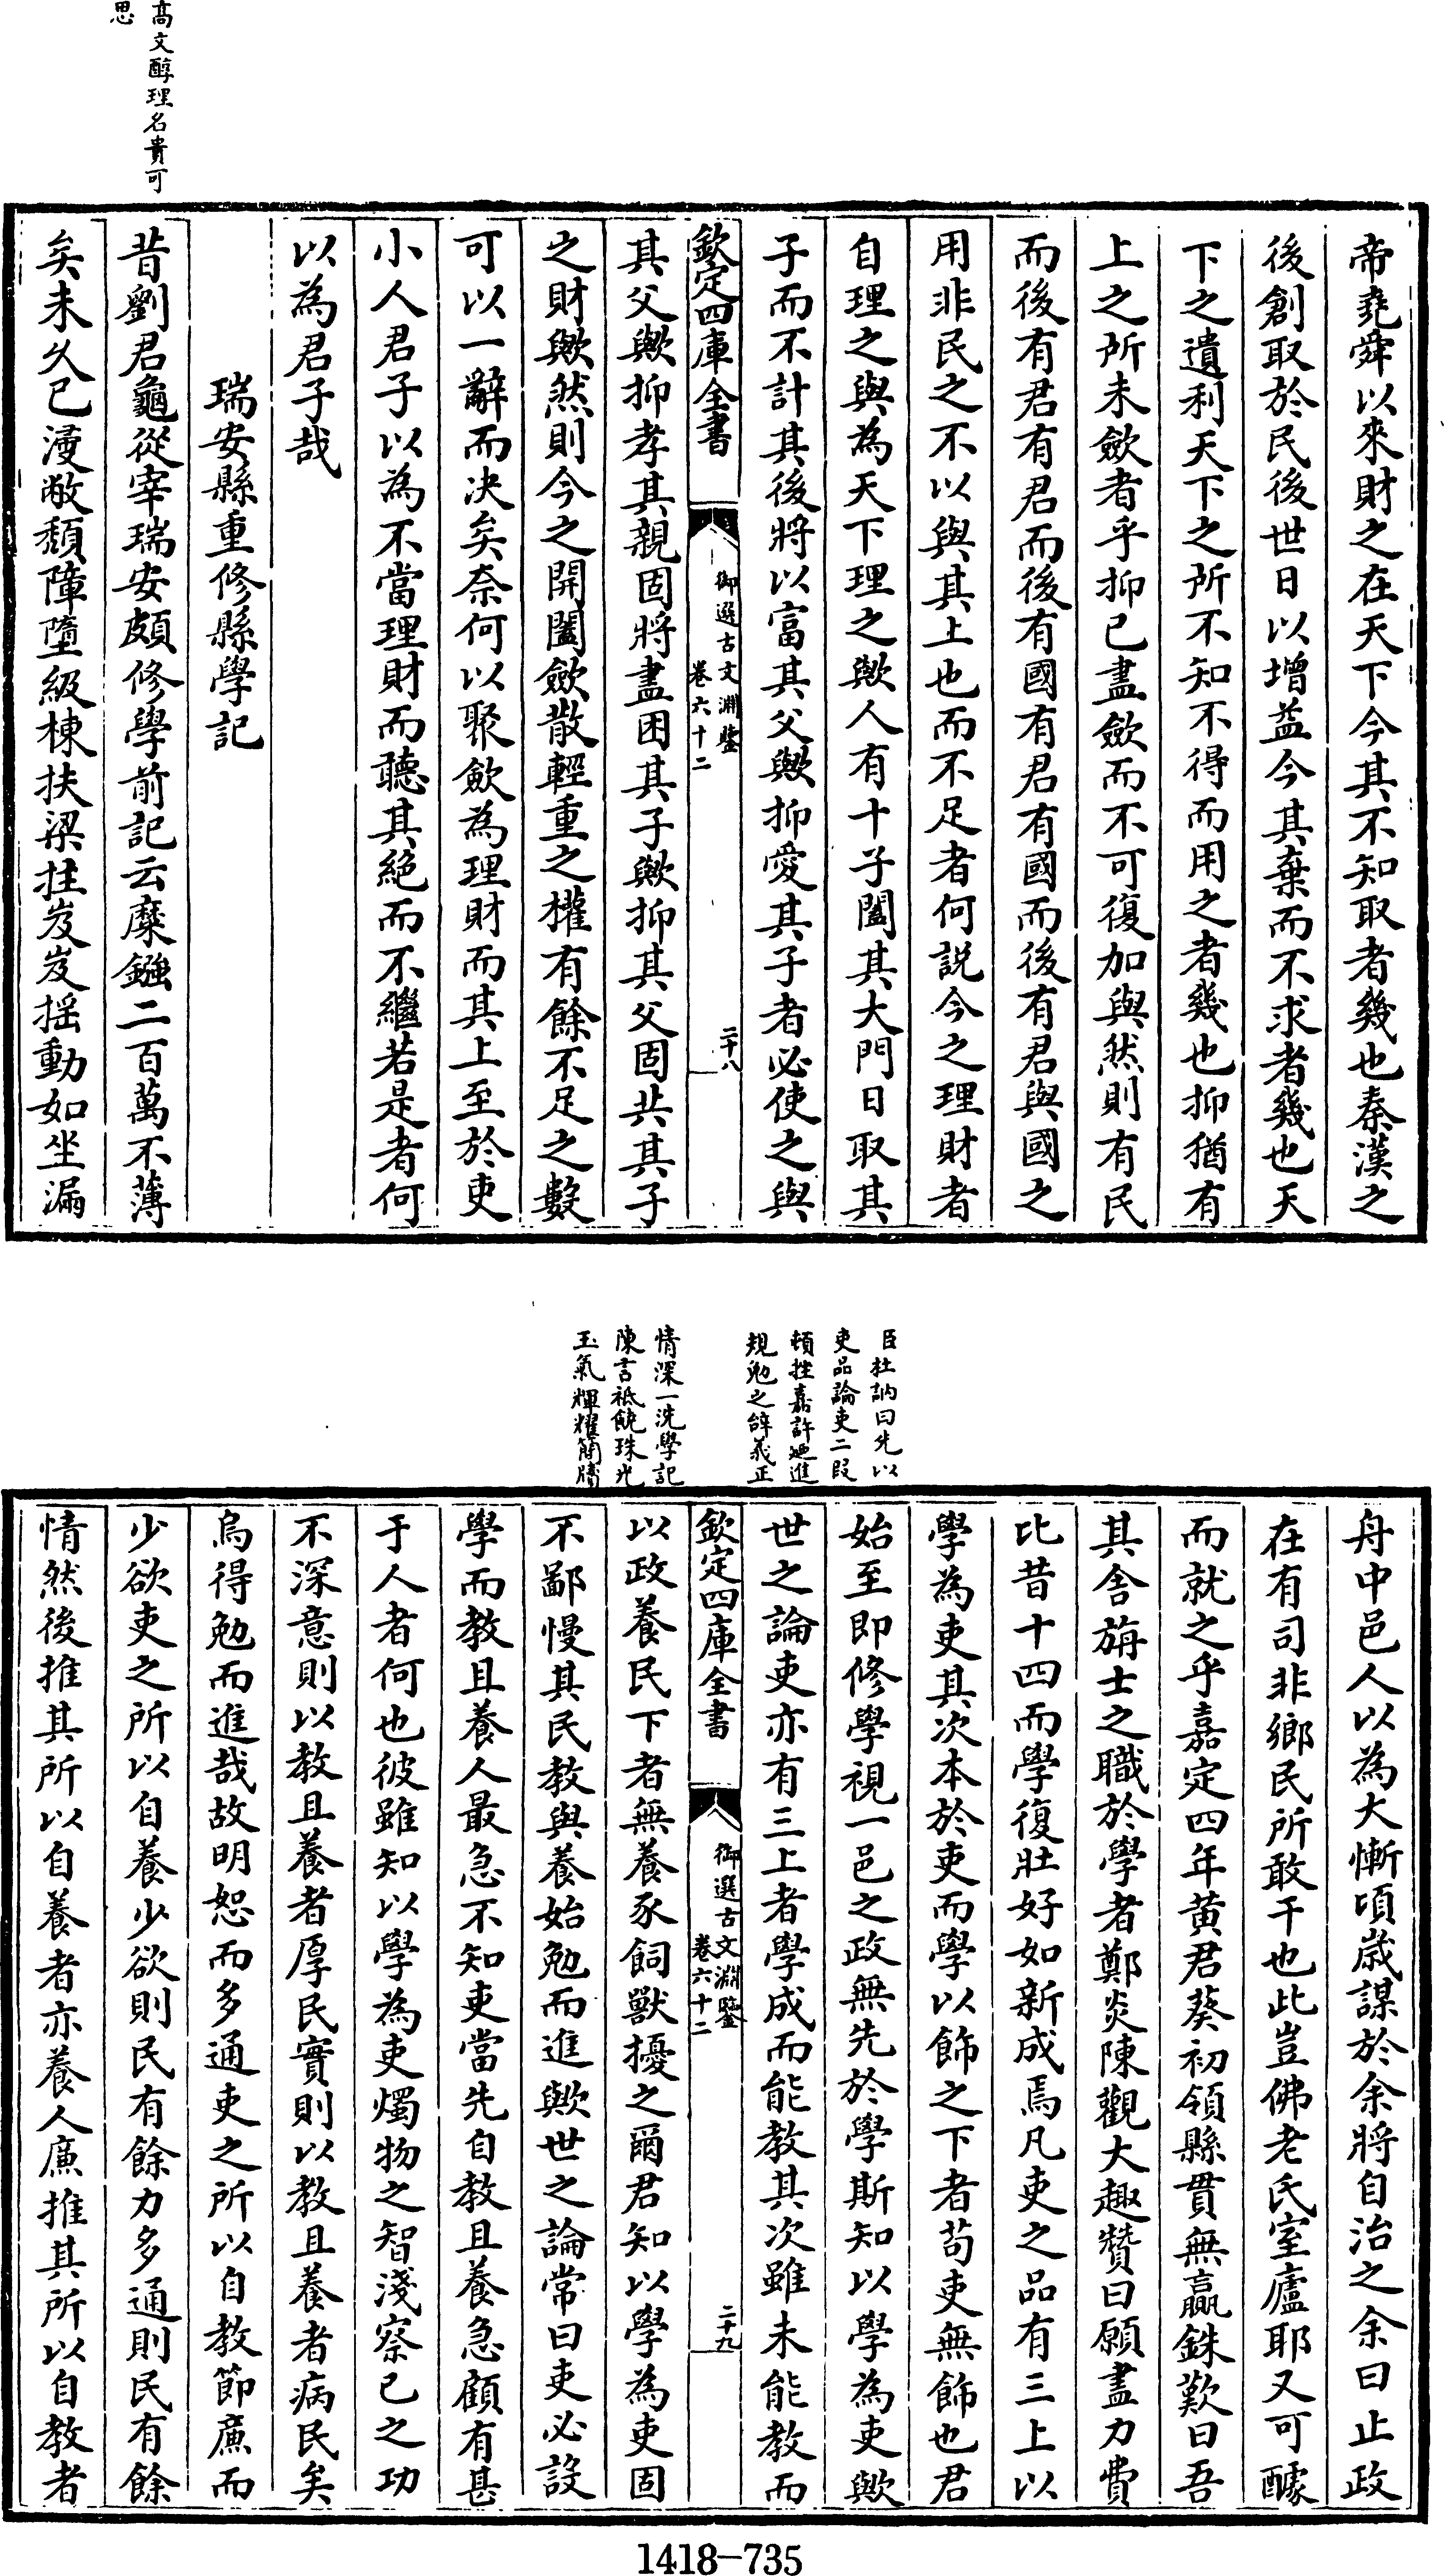 高文醇理名貴可
思
帝堯舜以來財之在天下今其不知取者幾也秦漢之
後創取於民後世日以增益今其棄而不求者幾也天
下之遺利天下之所不知不得而用之者幾也抑猶有
上之所未斂者乎抑已盡斂而不可復加與然則有民
而後有君有君而後有國有君有國而後有君與國之
用非民之不以與其上也而不足者何說今之理財者
自理之與為天下理之歟人有十子闔其大門日取其
子而不計其後將以富其父歟抑愛其子者必使之與
欽定四庫全書
御選古文淵鑒
卷六十二
二十八
其父歟抑孝其親固將盡困其子歟抑其父固共其子
之財歟然則今之開闔斂散輕重之權有餘不足之數
可以一辭而决矣奈何以聚斂為理財而其上至於吏
小人君子以為不當理財而聽其絶而不繼若是者何
以為君子哉
瑞安縣重修縣學記
昔劉君龜從宰瑞安頗修學前記云糜鏹二百萬不薄
矣未久已漫敝頹障墮級棟扶梁拄岌岌揺動如坐漏
臣杜訥曰先以
吏品論吏二段
頓挫嘉許迤進
規勉之辭義正
情深一洗學記
陳言祗饒珠光
玉氣輝耀簡牘
舟中邑人以為大慚頃歲謀於余將自治之余曰止政
在有司非鄉民所敢干也此豈佛老氏室廬耶又可醵
而就之乎嘉定四年黄君葵初領縣貫無贏銖歎曰吾
其舍旃士之職於學者鄭炎陳觀大趣贊曰願盡力費
比昔十四而學復壯好如新成焉凡吏之品有三上以
學為吏其次本於吏而學以飾之下者苟吏無飾也君
始至即修學視一邑之政無先於學斯知以學為吏歟
世之論吏亦有三上者學成而能教其次雖未能教而
欽定四庫全書
御選古文淵鑒
卷六十二
二十九
以政養民下者無養豕飼獸擾之爾君知以學為吏固
不鄙慢其民教與養始勉而進歟世之論常曰吏必設
學而教且養人最急不知吏當先自教且養急顧有甚
于人者何也彼雖知以學為吏燭物之智淺察已之功
不深意則以教且養者厚民實則以教且養者病民矣
烏得勉而進哉故明恕而多通吏之所以自教節廉而
少欲吏之所以自養少欲則民有餘力多通則民有餘
情然後推其所以自養者亦養人廉推其所以自教者
1418-735